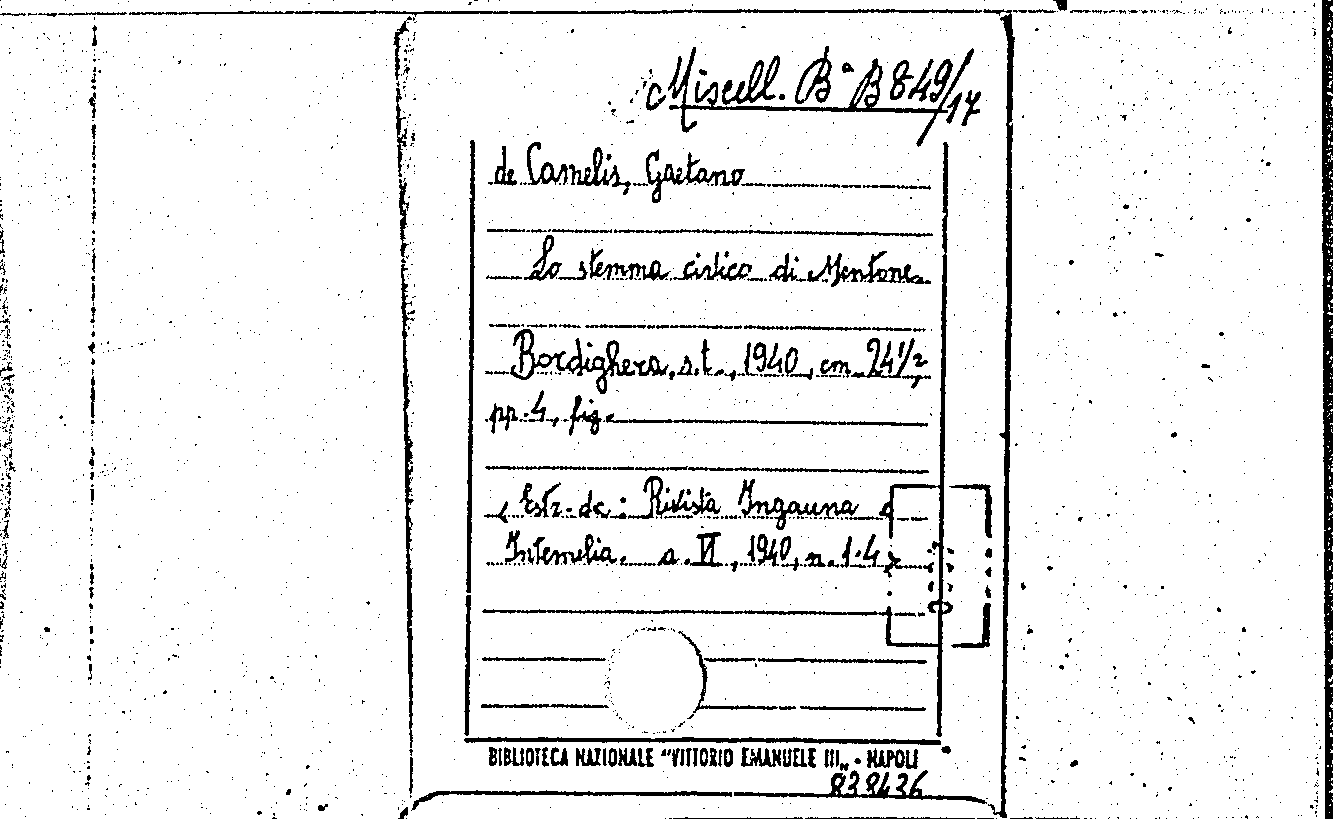 Miscell. Bª B 849/17
de Camelis, Gaetano
Lo stemma civico di Mentone.
Bordighera, s.t., 1940, cm. 24 1/2,
pp. 4, fig.
( Estr. da: Rivista Ingauna e
Intemelia. a. VI, 1940, n. 1-4 )
BIBLIOTECA NAZIONALE "VITTORIO EMANUELE III„ - NAPOLI
838436